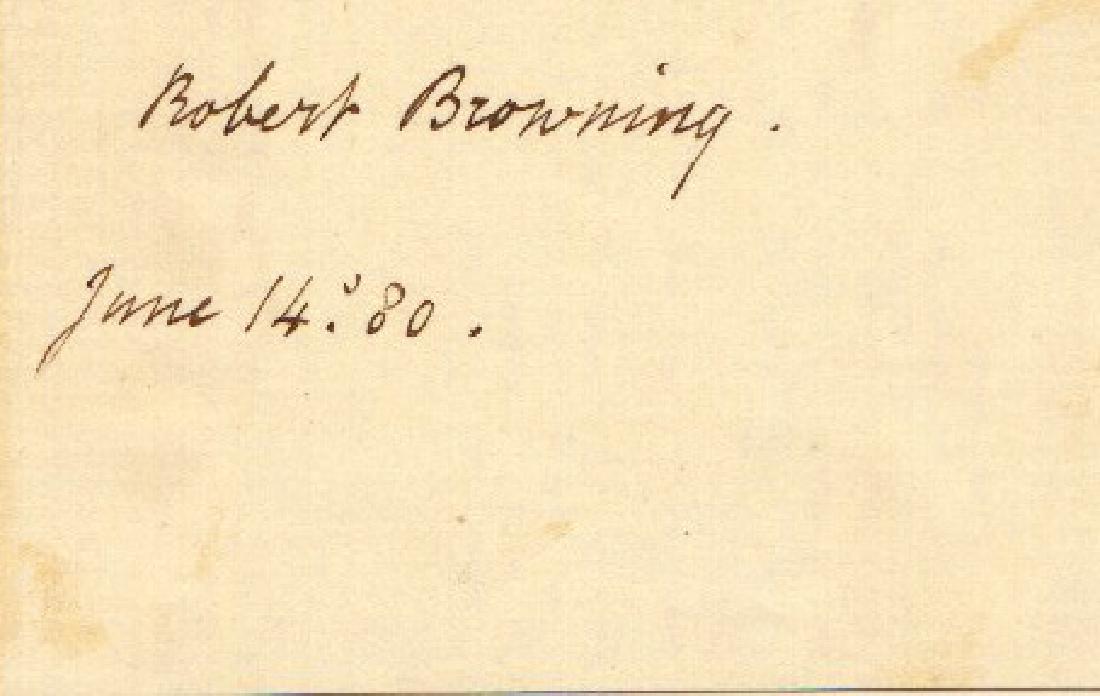 Robert Browning.
June 14. '80.